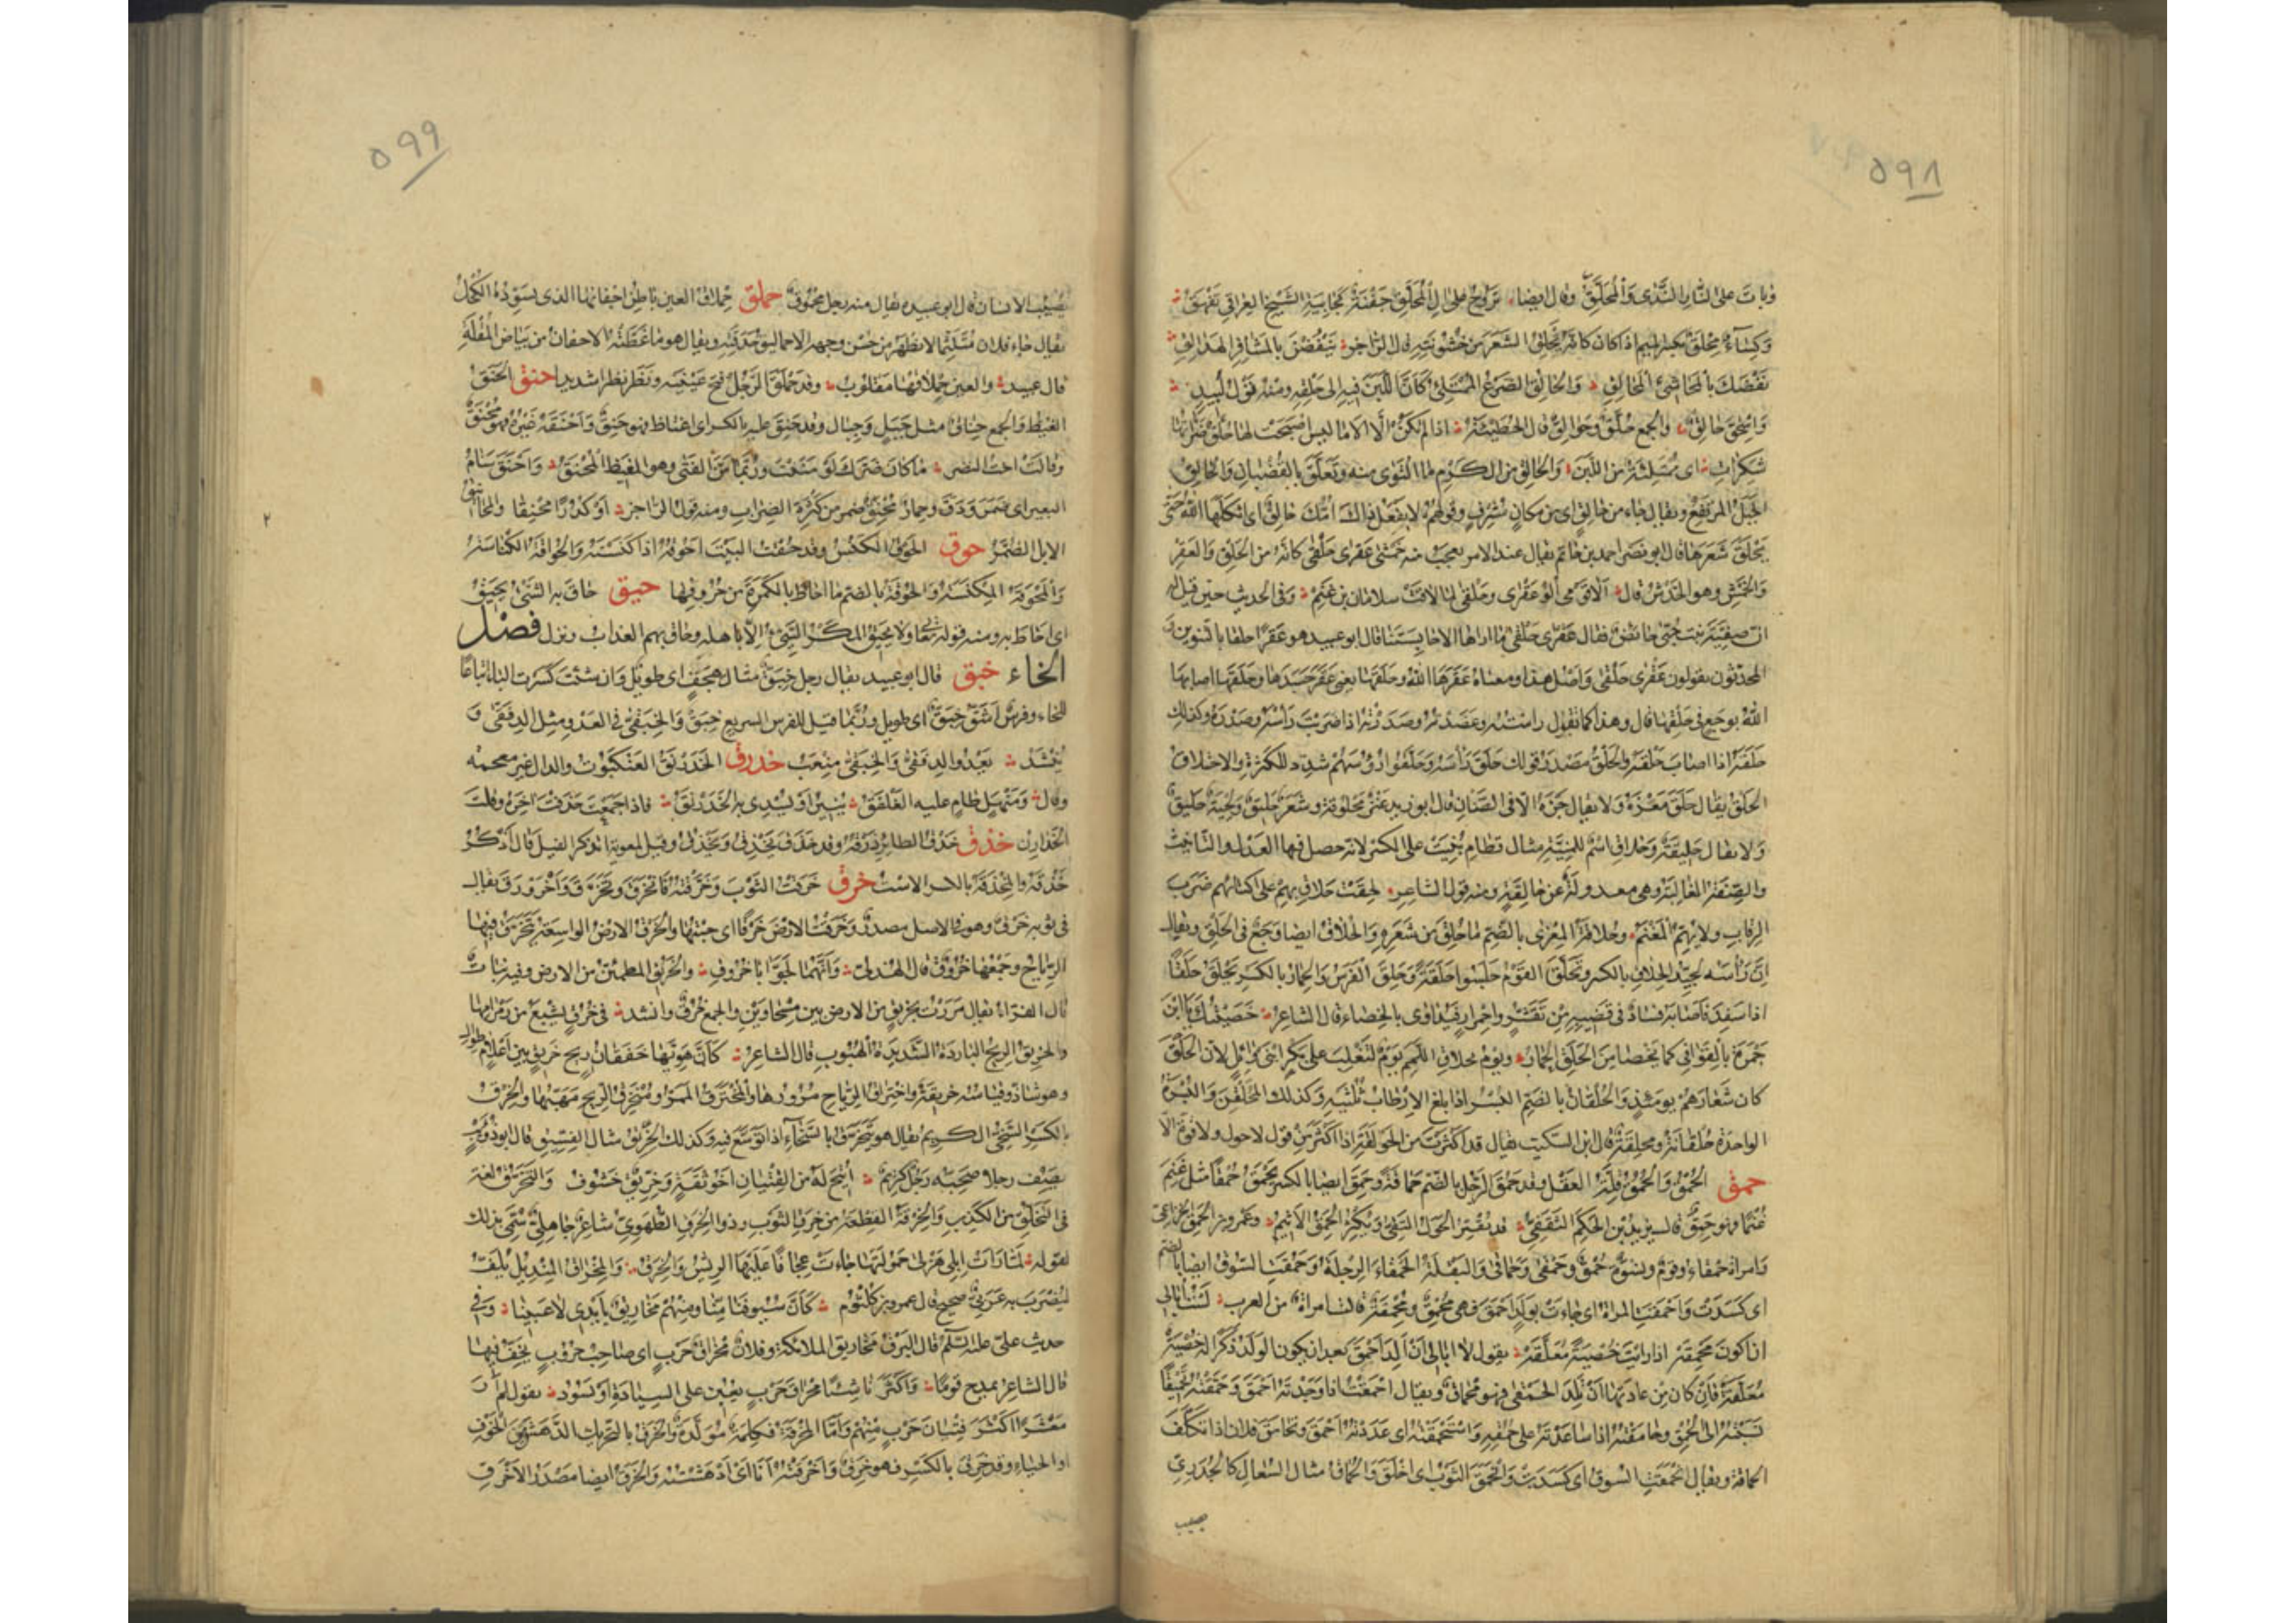 ٥٩٨
وبات على النار الندى والمحلق وقال ايضا تروح على ال المحلق جفنة كجابية الشيخ العراقي تفهق
وكساء محلق بكسر الميم اذا كان كانه يحلق الشعر من خشونته قال الراجز ينفضن بالمشافر الهدالق
نفضك بالمحاشئ المحالق والحالق الضرع الممتلئ كان اللبن فيه الى حلقه ومنه قول لبيد
واسحق حالق والجمع حلق وحوالق قال الحطيئة اذا لم تكن الا الاماليس اصبحت لها حلق ضراتها
شكرات اى ممتلئة من اللبن والحالق من الكرم ما التوى منه وتعلق بالقضبان والحالق
الجبل المرتفع ويقال جاء من حالق اى من مكان مشرف وقولهم لا تفعل ذاك امك حالق اى اثكلها الله حتى
تحلق شعرها قال ابو نصر احمد بن حاتم يقال عند الامر يعجب منه خمشى عقرى حلقى كانه من الحلق والعقر
والخمش وهو الخدش قال الا قومى الو عقرى وحلقى لما لاقت سلامان بن غنم وفى الحديث حين قيل له
ان صفية بنت حيى حائض فقال عقرى حلقى ما اراها الا حابستنا قال ابو عبيد هو عقرا حلقا بالتنوين و
المحدثون يقولون عقرى حلقى واصل هذا ومعناه عقرها الله وحلقها يعنى عقر جسدها وحلقها اصابها
الله بوجع فى حلقها قال وهذا كما تقول راسته وعضدته وصدرته اذا ضربت راسه وصدره وكذلك
حلقه اذا اصاب حلقه والحلق مصدر قولك حلق راسه وحلقوا رؤسهم شدد للكثرة والاحتلاق
الحلق يقال حلق معزه ولا يقال جزه الا فى الضان قال ابو زيد عنز محلوقة وشعر حليق ولحية حليق
ولا يقال حليقة وحلاق اسم للمنية مثال قطام بنيت على الكسر لانه حصل فيها العدل والتانيث
والصفة الغالبة وهى معدولة عن حالقة ومنه قول الشاعر لحقت حلاق بهم على اكسائهم ضرب
الرقاب ولا يهم المغنم وحلاقة المعزى بالضم ما حلق من شعره والحلاق ايضا وجع فى الحلق ويقال
ان راسه لجيد الحلاق بالكسر وتحلق القوم جلسوا حلقة حلقة وحلق الفرس والحمار بالكسر يحلق حلقا
اذا سفد فاصابه فساد فى قضيبه من تقشر واحمرار فيداوى بالخصاء قال الشاعر خصيتك يا ابن
جمرة بالقوافى كما يخصا من الحلق الحمار ويوم تحلاق اللمم يوم لتغلب على بكر ابنى وائل لان الحلق
كان شعارهم يومئذ والحلقان بالضم البسر اذا بلغ الارطاب ثلثيه وكذلك المحلقن والبسرة
الواحدة حلقانة ومحلقنة قال ابن السكيت يقال قد اكثرت من الحولقة اذا اكثر من قول لا حول ولا قوة الا
حمق الحمق والحمق قلة العقل وقد حمق الرجل بالضم حماقة وحمق ايضا بالكسر يحمق حمقا مثل غنم
غنما فهو حمق قال يزيد بن الحكم الثقفى قد يقتر الحول التقى ويكثر الحمق الاثيم وعمرو بن الحمق الخزاعى
وامراة حمقاء وقوم ونسوة حمق وحمقى وحماقى والبقلة الحمقاء الرجلة وحمقت السوق ايضا بالضم
اى كسدت واحمقت المراة اى جاءت بولد احمق فهى محمق ومحمقة قالت امراة من العرب لست ابالى
ان اكون محمقه اذا رايت خصية معلقه يقول لا ابالى ان الد احمق بعد ان يكون الولد ذكرا له خصية
معلقة فان كان من عادتها ان تلد الحمقى فهو محماق ويقال احمقت اذا وجدته احمق وحمقته تحميقا
نسبته الى الحمق وحامقته اذا ساعدته على حمقه واستحمقته اى عددته احمق وتحامق فلان اذا تكلف
الحماقة ويقال انحمقت السوق اى كسدت وانحمق الثوب اى اخلق والحماق مثال السعال كالجدرى
يصيب
٥٩٩
يصيب الانسان قال ابو عبيد يقال منه رجل محموق حملق حملاق العين باطن اجفانها الذى يسوده الكحل
يقال جاء فلان متلثما لا يظهر من حسن وجهه الا حماليق حدقتيه ويقال هو ما غطته الاجفان من بياض المقلة
قال عبيد والعين حملاقها مقلوب وقد حملق الرجل فتح عينيه ونظر نظرا شديدا حنق الحنق
الغيظ والجمع حناق مثل جبل وجبال وقد حنق عليه بالكسر اى اغتاظ فهو حنق واحنقه غيره فهو محنق
وقالت اخت النضر ما كان ضرك لو مننت وربما من الفتى وهو المغيظ المحنق واحنق سنام
البعير اى ضمر ودق وحمار محنق ضمر من كثرة الضراب ومنه قول الراجز او كدرا محنقا والمحانيق
الابل الضمر حوق الحوق الكنس وقد حقت البيت احوقه اذا كنسته والحواقة الكناسة
والمحوقة المكنسة والحوق بالضم ما احاط بالكمرة من حروفها حيق حاق به الشئ يحيق
اى احاط به ومنه قوله تعالى ولا يحيق المكر السيئ الا باهله وحاق بهم العذاب ونزل فصل
الخاء خبق قال ابو عبيد يقال رجل خبق مثال هجف اى طويل وان شئت كسرت الباء اتباعا
للخاء وفرس اشق خبق اى طويل وربما قيل للفرس السريع خبق والخبقى فى العدو مثل الدفقى و
ينشد يعدو الدفقى والخبقى منعب خدرق الخدرنق العنكبوت والدال غير معجمه
وقال ومنهل طام عليه الغلفق ينير او يسدى به الخدرنق فاذا جمعت حذفت اخره وقلت
الخدارن خذق خذق الطائر ذرقه وقد خذق يخذق ويخذق وقيل لمعوية اتذكر الفيل قال اذكر
خذقه والمخذقة بالكسر الاست خرق خرقت الثوب وخرقته فانخرق وتخرق واخرورق يقال
فى ثوبه خرق وهو فى الاصل مصدر وخرقت الارض خرقا اى جبتها والخرق الارض الواسعة تتخرق فيها
الرياح وجمعها خروق قال الهذلى وانهما لجوابا خروق والخريق المطمئن من الارض وفيه نبات
قال الفراء يقال مررت بخريق من الارض بين مسحاوين والجمع خرق وانشد فى خرق تشبع من رمرامها
والخريق الريح الباردة الشديدة الهبوب قال الشاعر كان هويها خفقان ريح خريق بين اعلام طوال
وهو شاذ وقياسه خريقة واختراق الرياح مرورها والمخترق الممر ومنخرق الريح مهبها والخرق
بالكسر السخى الكريم يقال هو يتخرق بالسخاء اذا توسع فيه وكذلك الخريق مثال الفسيق قال ابو ذؤيب
يصف رجلا صحبه رجل كريم اتيح له من الفتيان خرق اخو ثقة وخريق خشوف والتخرق لغة
فى التخلق من الكذب والخرقة القطعة من خرق الثوب وذو الخرق الطهوى شاعر جاهلى سمى بذلك
لقوله لما رات ابلى هزلى حمولتها جاءت عجافا عليها الريش والخرق والمخراق المنديل يلف
ليضرب به عربى صحيح قال عمرو بن كلثوم كان سيوفنا منا ومنهم مخاريق بايدى لاعبينا وفى
حديث على عليه السلام قال البرق مخاريق الملائكة وفلان مخراق حرب اى صاحب حروب يخف فيها
قال الشاعر يمدح قوما واكثر ناشئا مخراق حرب يعين على السيادة او يسود يقول لم ار
معشرا اكثر فتيان حرب منهم واما المخرقة فكلمة مولدة والخرق بالتحريك الدهش من الخوف
او الحياء وقد خرق بالكسر فهو خرق واخرقته انا اى ادهشته والخرق ايضا مصدر الاخرق